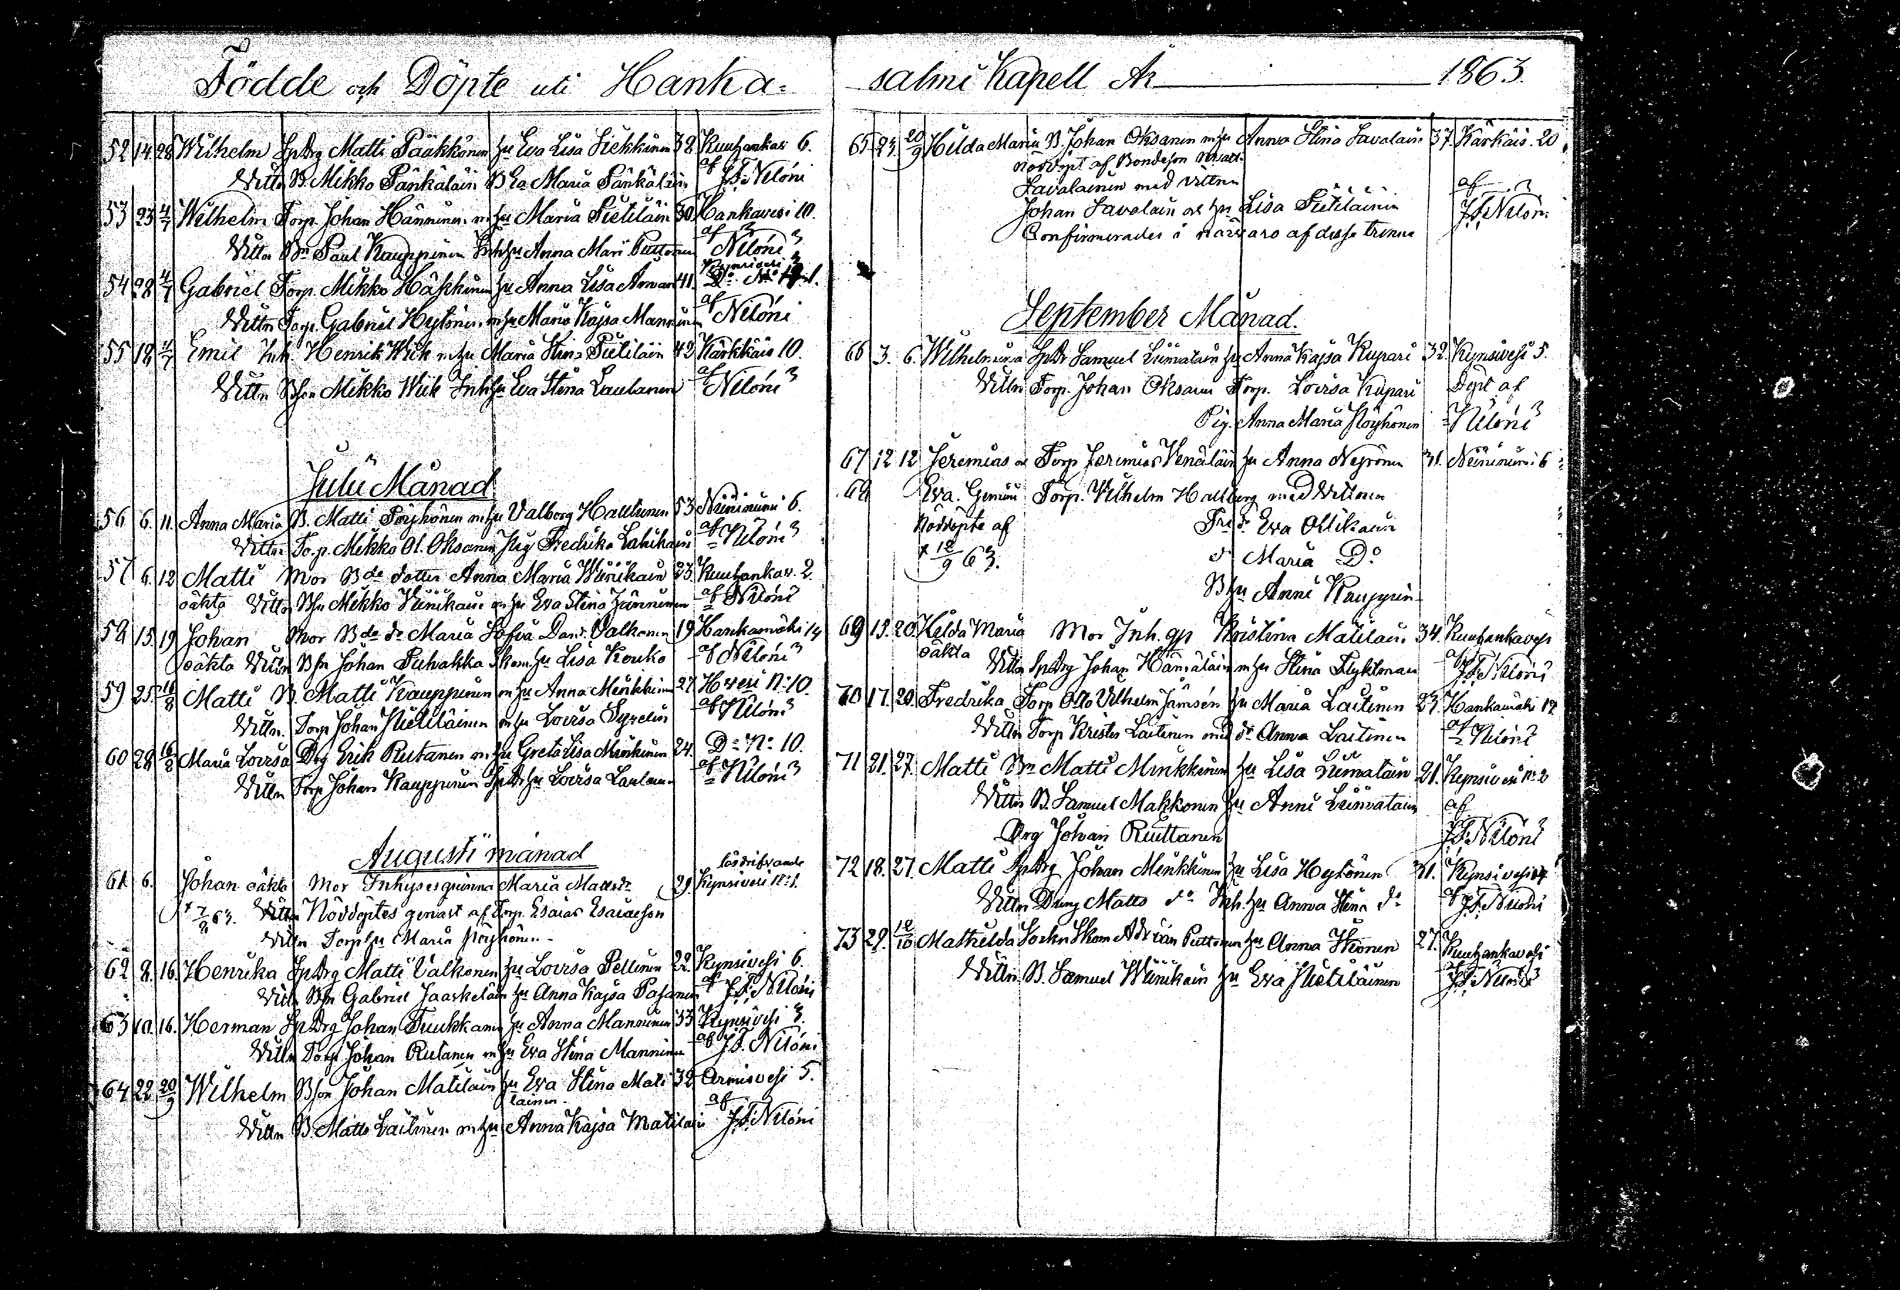 Födde och Döpte uti Hanka=
52 14 28 Wilhelm SpDrg Matti Pääkkönen hu Eva Lisa Liekkinen 38 Kuuhankav 6.
Vittn B. Mikko Pänkäläin Maria Pänkäläin af J.F. Niloni
53 23 4/7 Wilhelm Torp. Johan Hänninen m hu Maria Pietiläin 30. Hankavesi 10.
Vittn Paul Kauppinen Inh hu Anna Mari Puttonen af Niloni
54 28 4/7 Gabriel Torp. Mikko Häkkinen hu Anna Lisa 41. Kynsivesi
Vittn Torp. Gabriel Heytönen m hu Maria Kajsa Manninen af Niloni
55 18 4/7 Emil Inh. Henrik Wiik m hu Maria Stina Pietiläin 42 Kärkkäis 10.
Vittn Bson Mikko Wiik Inh hu Eva Stina Lautanen af Niloni
Julii Månad
56 6. 11. Anna Maria B. Matti Pöyhönen m hu Valborg Hautinen 53 Niinimäki 6.
Vittn Torp. Mikko Ol. Oksanen Pig Fredrika af Niloni
57 6. 12 Matti Mor Bde dotter Anna Maria Wiinikain 23. Kuuhankav. 2.
oäkta Vittn Bsn Mikko Wiinikain m hu Eva Stina Jänninen af Niloni
58 15. 19 Johan Mor Bde dr Maria Sofia Dav.dr Valkonen 19 Hankamäki 14
oäkta Vittn Bsn Johan Puhakka Skom. hu Lisa Kouko af Niloni
59 25. 16/8 Matti B. Matti Kauppinen m hu Anna Minkkinen 27 H vesi No 10.
Vittn. Torp Johan Pietiläinen m hu Lovisa af Niloni
60 28 16/8 Maria Lovisa Drg Erik Rutanen m hu Greta Lisa Minkkinen 24. Do No 10.
Vittn Torp Johan Kauppinen hu Lovisa af Niloni
Augusti månad
61 6. Johan oäkta Mor Inhysesqvinna Maria Mattsdr 29. Kynsivesi No 1.
† 7/8 63. Vittn Nöddöptes genast af Torp. Esaias Esaiæson
Vittn Torp hu Maria Pöyhönen
62 8. 16. Henrika SpDrg Matti Valkonen hu Lovisa Pellinen 22. Kynsivesi 6.
Vittn Bsn Gabriel Jaaskeläin hu Anna Kajsa Pasanen af J.F. Niloni
63 10. 16. Herman SpDrg Johan Tuukkanen hu Anna Manninen 33 Kynsivesi 3.
Vittn Torp Johan Rutanen m hu Eva Stina Manninen af J.F. Niloni
64 22 20/9 Wilhelm Bson Johan Matilain hu Eva Stina Mati 32 Armisvesi 5.
lainen. af
Vittn B. Matts Laitinen m hu Anna Kajsa Matilain J.F. Niloni
salmi Kapell År 1863.
65 23. 20/9 Hilda Maria B. Johan Oksanen m hu Anna Stina Savalain 37. Kärkäis. 20
Nöddöpt af Bondeson
Savalainen med Vittnen af
Johan Savalain och hu Lisa Pietiläinen J.F. Niloni
Confirmerades i närvaro af desse trenne
September Månad.
66 3. 6. Wilhelmina SpDr Samuel Liimatain hu Anna Kajsa Kupari 32. Kynsivesi 5.
Vittn Torp. Johan Oksanen Torp. Lovisa Kupari Döpt af
Pig. Anna Maria Pöyhönen Niloni
67 12 12 Jeremias och Torp Jeremias Venäläin hu Anna Neyrönen 31. Niinimäki 6
68 Eva. Gemini Torp. Wilhelm Hallberg med Vittnen
Nöddöpte af Eva Ollikain
† 12/9 63. Maria Do
Anni Kauppin
69 15. 20. Hilda Maria Mor Inh. qv Kristina Matilain 34. Kuuhankavesi
oäkta Vittn SpDrg Johan Hämäläin m hu Stina Flyktman af J.F. Niloni
70 17. 20. Fredrika Torp Otto Vilhelm Jämsén hu Maria Laitinen 23. Hankamäki 12
Vittn Torp Krister Laitinen med do Anna Laitinen af Niloni
71 21. 27. Matti Bn Matti Minkkinen hu Lisa Liimatain 21. Kynsivesi No 2
Vittn B. Samuel Makkonen hu Anni Liimatain af
Drg Johan Ruuttanen J.F. Niloni
72 18. 27. Matti SpDrg Johan Minkkinen hu Lisa Heytönen 31. Kynsivesi
Vittn Dreng Matts do Inh. hu Anna Stina do af J.F. Niloni
73 29. 18/10 Mathilda Sockn Skom Adrian Puttonen hu Anna 27. Kuuhankavesi
Vittn B. Samuel Wiinikain hu Eva Pietiläinen J.F. Niloni